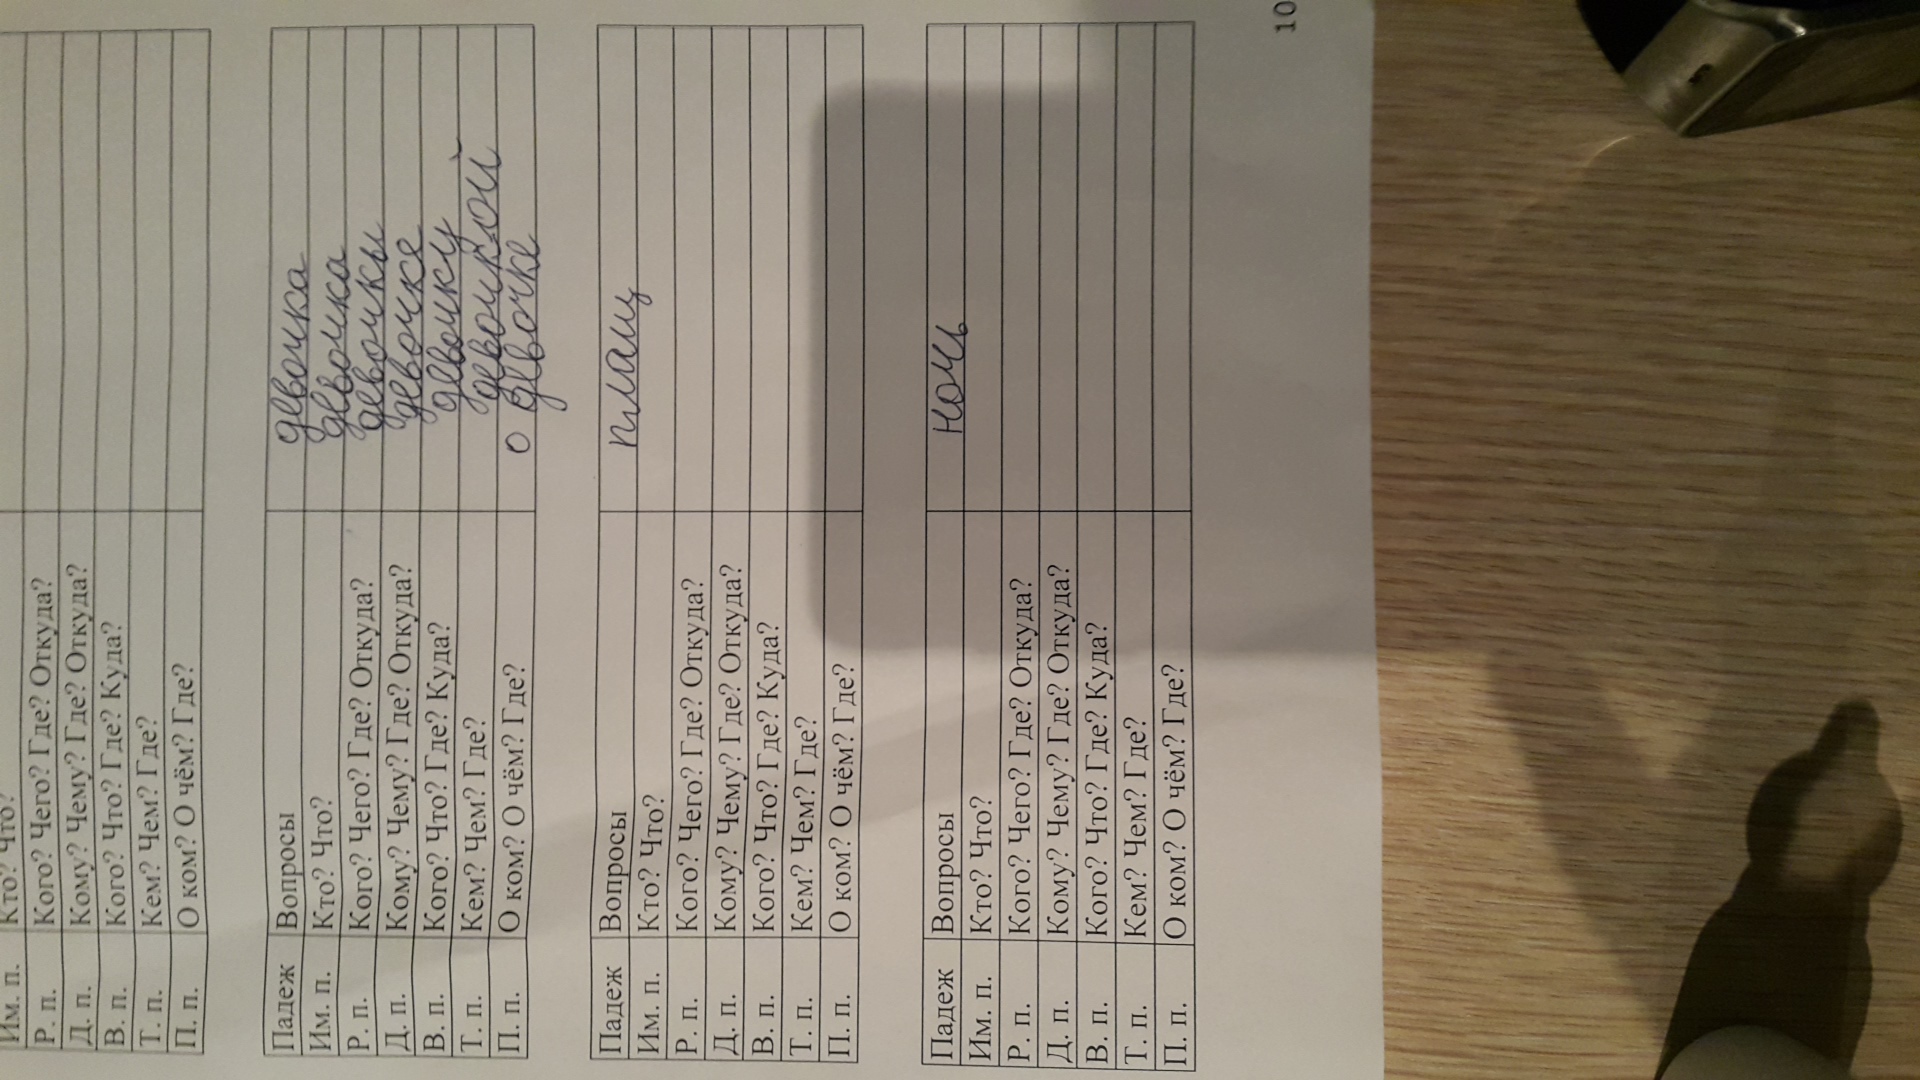 Им. п. Кто? Что?
Р. п. Кого? Чего? Где? Откуда?
Д. п. Кому? Чему? Где? Откуда?
В. п. Кого? Что? Где? Куда?
Т. п. Кем? Чем? Где?
П. п. О ком? О чём? Где?
Падеж Вопросы девочка
Им. п. Кто? Что? девочка
Р. п. Кого? Чего? Где? Откуда? девочкы
Д. п. Кому? Чему? Где? Откуда? девочке
В. п. Кого? Что? Где? Куда? девочку
Т. п. Кем? Чем? Где? девочкой
П. п. О ком? О чём? Где? о девочке
Падеж Вопросы плащ
Им. п. Кто? Что?
Р. п. Кого? Чего? Где? Откуда?
Д. п. Кому? Чему? Где? Откуда?
В. п. Кого? Что? Где? Куда?
Т. п. Кем? Чем? Где?
П. п. О ком? О чём? Где?
Падеж Вопросы ночь
Им. п. Кто? Что?
Р. п. Кого? Чего? Где? Откуда?
Д. п. Кому? Чему? Где? Откуда?
В. п. Кого? Что? Где? Куда?
Т. п. Кем? Чем? Где?
П. п. О ком? О чём? Где?
10